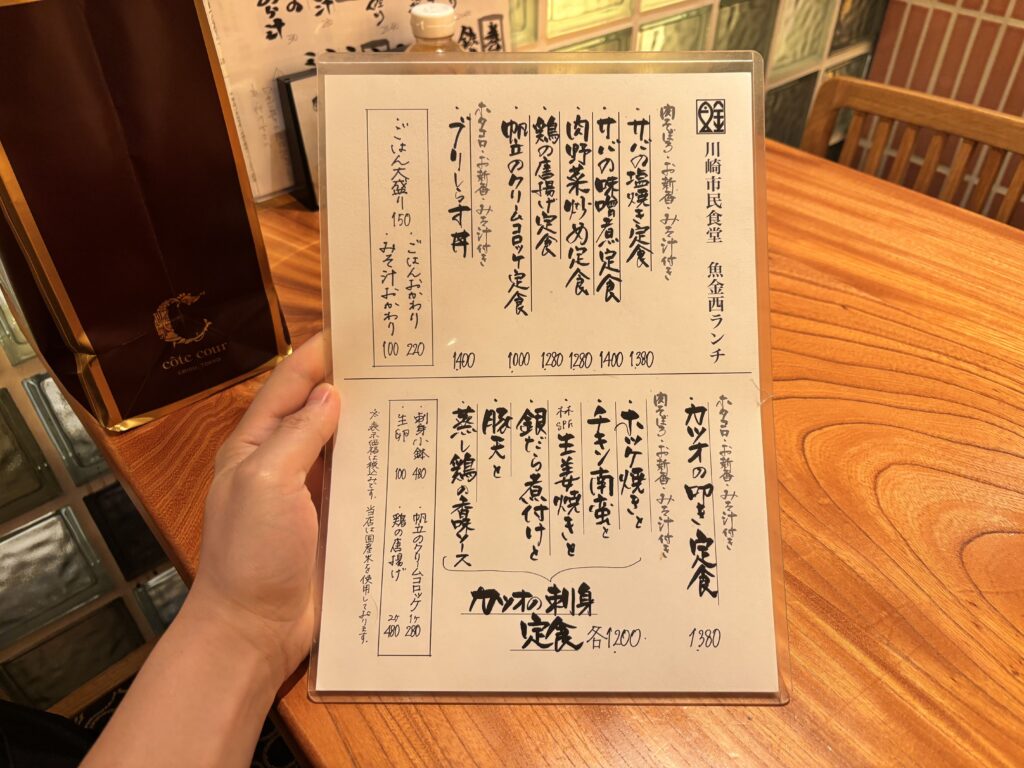 川崎市民食堂 魚金西ランチ
肉そぼろ・お新香・みそ汁付き
・サバの塩焼き定食 1380
・サバの味噌煮定食 1400
・肉野菜炒め定食 1280
・鶏の唐揚げ定食 1280
・帆立のクリームコロッケ定食 1000
ホタコロ・お新香・みそ汁付き
・ブリしらす丼 1400
・ごはん大盛り 150
・ごはんおかわり 220
・みそ汁おかわり 100
ホタコロ・お新香・みそ汁付き
・カツオの叩き定食 1380
肉そぼろ・お新香・みそ汁付き
・ホッケ焼きと
・チキン南蛮と
・林SPF生姜焼きと
・銀だら煮付けと
・豚天と
・蒸し鶏の香味ソース
カツオの刺身
定食 各1200
・刺身小鉢 480
・生卵 100
・帆立のクリームコロッケ 1ケ 280
・鶏の唐揚げ 2ケ 480
※表示価格は税込みです。当店は国産米を使用しております。
côte cour